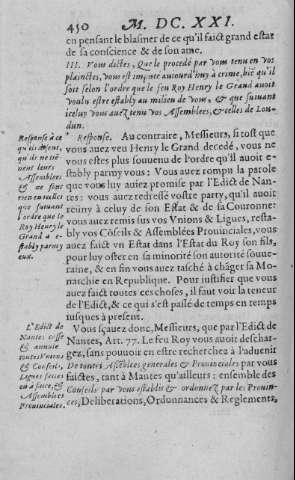 450 M. DC. XXI.
en pensant le blasmer de ce qu'il faict grand estat
de sa conscience & de son ame.
III. Vous dictes, Que le procedé par vous tenu en vos
plainctes, vous est imputé aujourd'huy à crime, biē qu'il
soit selon l'ordre que le feu Roy Henry le Grand auoit
voulu estre estably au milieu de vous, & que suiuant
iceluy vous auez tenu vos Assemblees, & celles de Lou-
dun.
Response. Au contraire, Messieurs, si tost que
vous auez veu Henry le Grand decedé, vous ne
vous estes plus souuenu de l'ordre qu'il auoit e-
stably parmy vous: Vous auez rompu la parole
que vous luy auiez promise par l'Edict de Nan-
tes: vous auez redressé vostre party, qu'il auoit
reüny à celuy de son Estat & de sa Couronne:
vous auez remis sus vos Vnions & Ligues, resta-
bly vos Cōseils & Assemblées Prouinciales, vous
auez faict vn Estat dans l'Estat du Roy son fils,
pour luy oster en sa minorité son autorité souue-
raine, & en fin vous auiez tasché à chāger sa Mo-
narchie en Republique. Pour iustifier que vous
auez faict toutes ces choses, il faut voir la teneur
de l'Edict, & ce qui s'est passé de temps en temps
iusques à present.
Vous sçauez donc, Messieurs, que par l'Edict de
Nantes, Art. 77. Le feu Roy vous auoit deschar-
gez, sans pouuoir en estre recherchez à l'aduenir
De toutes Assēblees generales & Prouinciales par vous
faictes, tant à Mantes qu'ailleurs: ensemble des
Conseils par vous establis & ordonnez par les Prouin-
ces, Deliberations, Ordonnances & Reglements,
Response à ce
qu'ils disent,
qu'ils ne tien-
nent leurs
Assemblees
& ne font
rien en icelles
que suiuant
l'ordre que le
Roy Henry le
Grand a e-
stably parmy
eux.
L'Edict de
Nantes casse
& annulle
toutes Vnions
& Conseils,
Ligues faictes
en & Assemblees
Prouinciales.